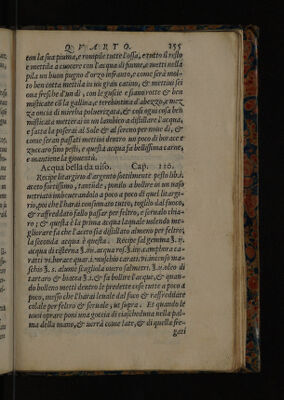 QVARTO. 155
con la sua piuma, e rompile tutte l'ossa, e tutto il resto
e mettila a cuocere con l'acqua di fiume, e metti nella
pila un buon pugno d'orzo infranto, e come sarà mol-
to ben cotta mettila in un gran catino, & mettici sei
oua fresche d'un dì, con le guscie e siano rotte & ben
misticate cõ la gallina, e terebintina d'abezzo, e mez
za oncia di mirrha poluerizata, & cosi ogni cosa ben
misticata mettarai in un lambico a distillare l'acqua,
e fatta la poserai al Sole & al sereno per noue dì, &
come seran passati mettivi dentro un poco di borace e
zuccaro fino pesti, e questa acqua fa bellissima carne,
e mantiene la giouentù.
Acqua bella da uiso. Cap. 110.
Recipe litargirio d'argento sottilmente pesto lib. i.
aceto fortissimo, tamisse; ponilo a bollire in un uaso
uetriato imbeuerandolo a poco a poco di quel litargi-
rio, poi che l'harai consumato tutto, toglilo dal fuoco,
& raffreddato fallo passar per feltro, e serualo chia-
ro; & questa è la prima acqua laquale uolendo me-
gliorare fa che l'aceto sia distillato almeno per feltro,
la seconda acqua è questa. Recipe sal gemma ℥. iij.
acqua di cisterna ℥. iij. acqua ros. ℥. iij. camphora ca-
ratti vi. borace quar. i. muschio carati. vi. incenso ma-
schio ℥. s. alumi scagliola ouero salmerti. ℥. ii. oleo di
tartaro & biacca ℥. i. & fa bollire l'acqua, & quan-
do bolleno metti dentro le predette cose tutte a poco a
poco, messo che l'harai leuale dal fuoco & raffreddate
colale per feltro & serbale, ut supra. Et quando le
uuoi oprare poni una goccia di ciascheduna nella pal-
ma della mano, & uerrà come late, & di quella fre-
gati